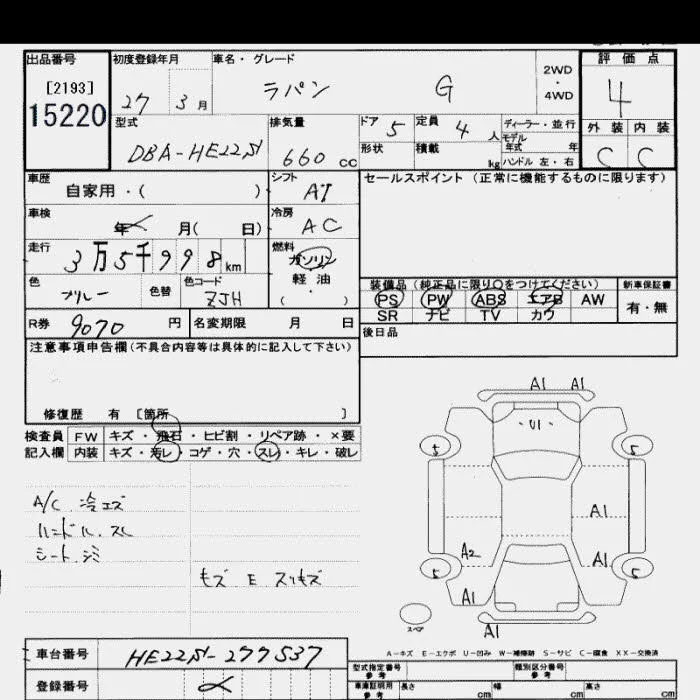 出品番号
[2193]
15220
初度登録年月
27 3月
車名・グレード
ラパン G
2WD
・
4WD
評価点
4
型式
DBA-HE22S
排気量
660 cc
ドア 5
定員 4 人
形状
積載 kg
ディーラー・並行
モデル
年式 年
ハンドル 左・右
外装 内装
C C
車歴
自家用・( )
シフト
AT
セールスポイント(正常に機能するものに限ります)
車検
年 月( 日)
冷房
AC
走行
3万5千998km
燃料
ガソリン
軽油
( ・ )
色
ブルー
色替
色コード
ZJH
装備品(純正品に限り○をつけてください)
PS PW ABS エアB AW
SR ナビ TV カワ
新車保証書
有・無
R券 9070 円
名変期限 月 日
後日品
注意事項申告欄(不具合内容等は具体的に記入して下さい)
修復歴 有 [箇所 ]
検査員
記入欄
FW キズ・飛石・ヒビ割・リペア跡・×要
内装 キズ・汚レ・コゲ・穴・スレ・キレ・破レ
A/C 冷エズ
ハンドル スレ
シート シミ
A1 A1
U1
5 5
A1
A2 A1
5 5
A1
スペア
A1
A-キズ E-エクボ U-凹み W-補修跡 S-サビ C-腐食 XX-交換済
車台番号
HE22S-277537
登録番号
型式指定番号
参考
類別区分番号
参考
車庫証明用
参考
長さ cm 幅 cm 高さ cm